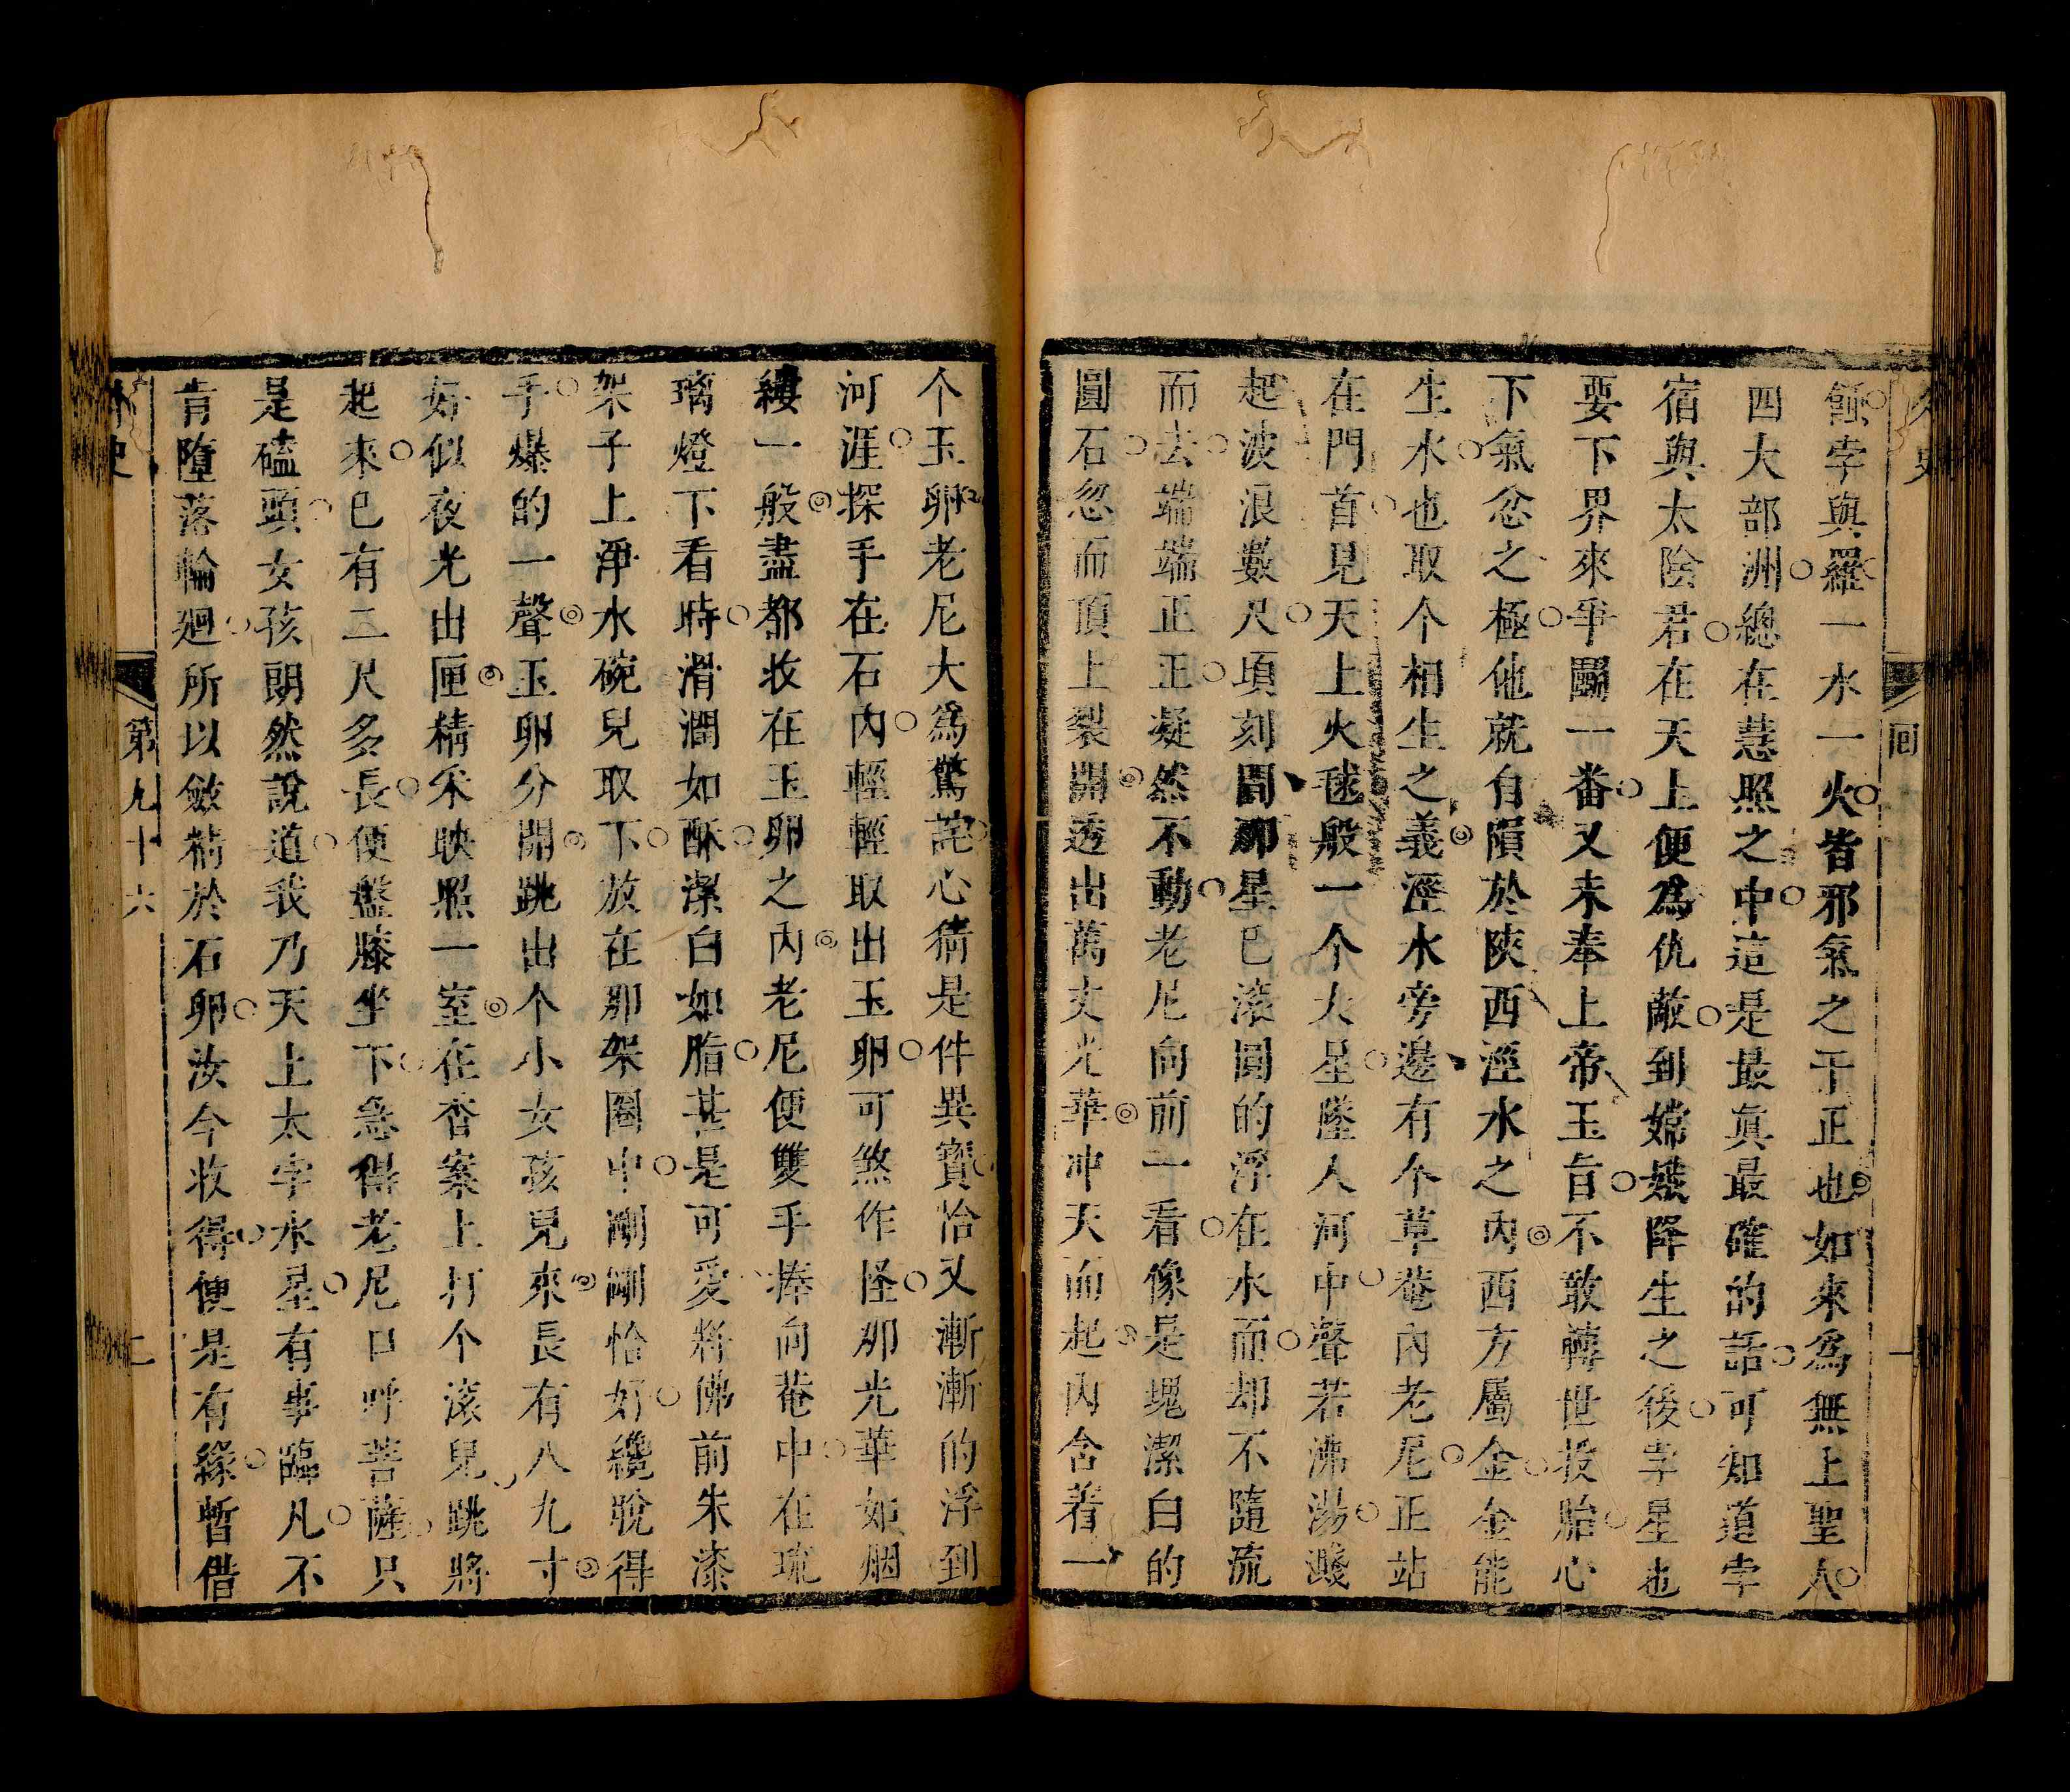 外史
回
一
餘孛與羅一水一火皆邪氣之干正也如來爲無上聖人
四大部洲總在慧照之中這是最真最確的話可知道孛
宿與太陰君在天上便爲仇敵到嫦娥降生之後孛星也
要下界來爭鬬一番又未奉上帝玉旨不敢轉世投胎心
下氣忿之極他就自隕於陝西涇水之內西方屬金金能
生水也取个相生之義涇水旁邊有个草菴內老尼正站
在門首見天上火毬般一个大星墜人河中聲若沸湯濺
起波浪數尺頃刻間那星已滾圓的浮在水面却不隨流
而去端端正正凝然不動老尼向前一看像是塊潔白的
圓石忽而頂上裂開透出萬丈光華冲天而起內含着一
个玉卵老尼大爲驚詫心猜是件異寶恰又漸漸的浮到
河涯探手在石內輕輕取出玉卵可煞作怪那光華如烟
縷一般盡都收在玉卵之內老尼便雙手捧向菴中在琉
璃燈下看時滑潤如酥潔白如脂甚是可愛將佛前朱漆
架子上淨水碗兒取下放在那架圈中剛剛恰好纔脫得
手爆的一聲玉卵分開跳出个小女孩兒來長有八九寸
好似夜光出匣精采映照一室在杳案上打个滚兒跳將
起來已有二尺多長便盤膝坐下急得老尼口呼菩薩只
是磕頭女孩朗然說道我乃天上太孛水星有事臨凡不
肯墮落輪廻所以斂精於石卵汝今收得便是有緣暫借
外史
第九十六
二